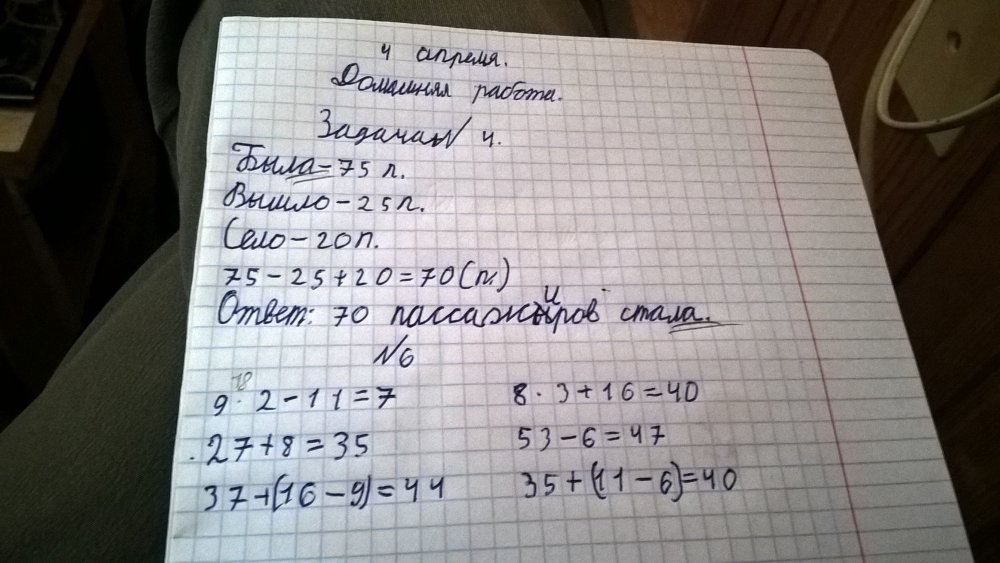 4 апреля.
Домашняя работа.
Задача № 4.
Была - 75 п.
Вышло - 25 п.
Село - 20 п.
75 - 25 + 20 = 70 (п.)
Ответ: 70 пассажиров стала.
№6
18
9 · 2 - 11 = 7 8 · 3 + 16 = 40
27 + 8 = 35 53 - 6 = 47
37 + (16 - 9) = 44 35 + (11 - 6) = 40